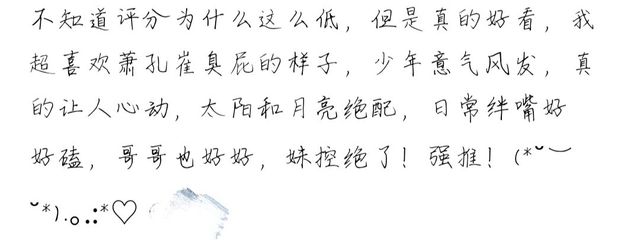 不知道评分为什么这么低，但是真的好看，我
超喜欢萧孔崔臭屁的样子，少年意气风发，真
的让人心动，太阳和月亮绝配，日常绊嘴好
好磕，哥哥也好好，妹控绝了！强推！(*˘︶
˘*).｡.:*♡